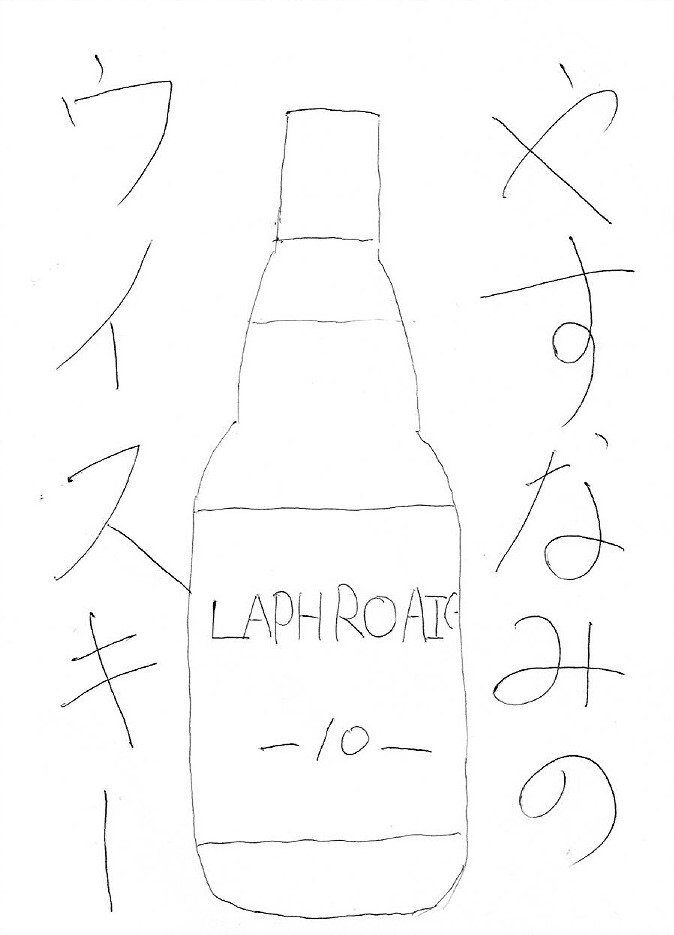 やすなみの
ウイスキー
LAPHROAIG
-10-